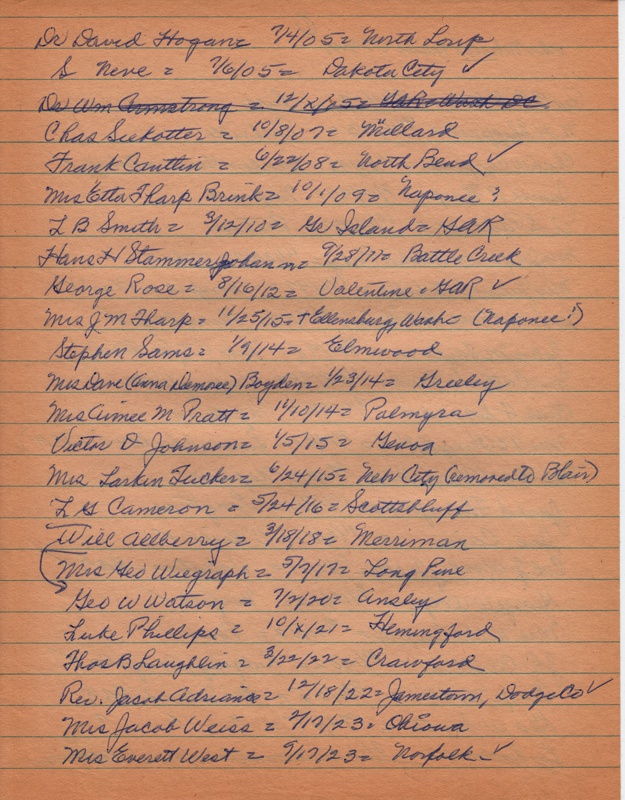 Dr David Hogan = 7/4/05 = North Loup
S Neve = 7/6/05 = Dakota City ✓
Dr Wm Armstrong = 12/2/05 = GAR = Wash DC
Chas Seekotter = 10/8/07 = Millard
Frank Cautlin = 6/22/08 = North Bend ✓
Mrs Etta Tharp Brink = 10/1/09 = Naponee ?
L B Smith = 3/12/10 = Gr Island = GAR
Hans H Stammerjohann = 9/28/11 = Battle Creek
George Rose = 8/16/12 = Valentine = GAR ✓
Mrs J M Tharp = 11/25/15 = + Ellensburg, Wash = (Naponee ?)
Stephen Sams = 1/9/14 = Elmwood
Mrs Dave (Anna Demoree) Boyden = 1/23/14 = Greeley
Mrs Aimee M Pratt = 11/10/14 = Palmyra
Victor D Johnson = 1/5/15 = Genoa
Mrs Larkin Tucker = 6/24/15 = Neb City (removed to Blair)
L G Cameron = 5/24/16 = Scottsbluff
Will Allberry = 3/18/18 = Merriman
Mrs Geo Wiegraph = 5/7/17 = Long Pine
Geo W Watson = 7/2/20 = Ansley
Luke Phillips = 10/x/21 = Hemingford
Thos B Laughlin = 3/22/22 = Crawford
Rev. Jacob Adriance = 12/18/22 = Jamestown, Dodge Co ✓
Mrs Jacob Weiss = 2/17/23 = Ohiowa
Mrs Everett West = 9/17/23 = Norfolk = ✓